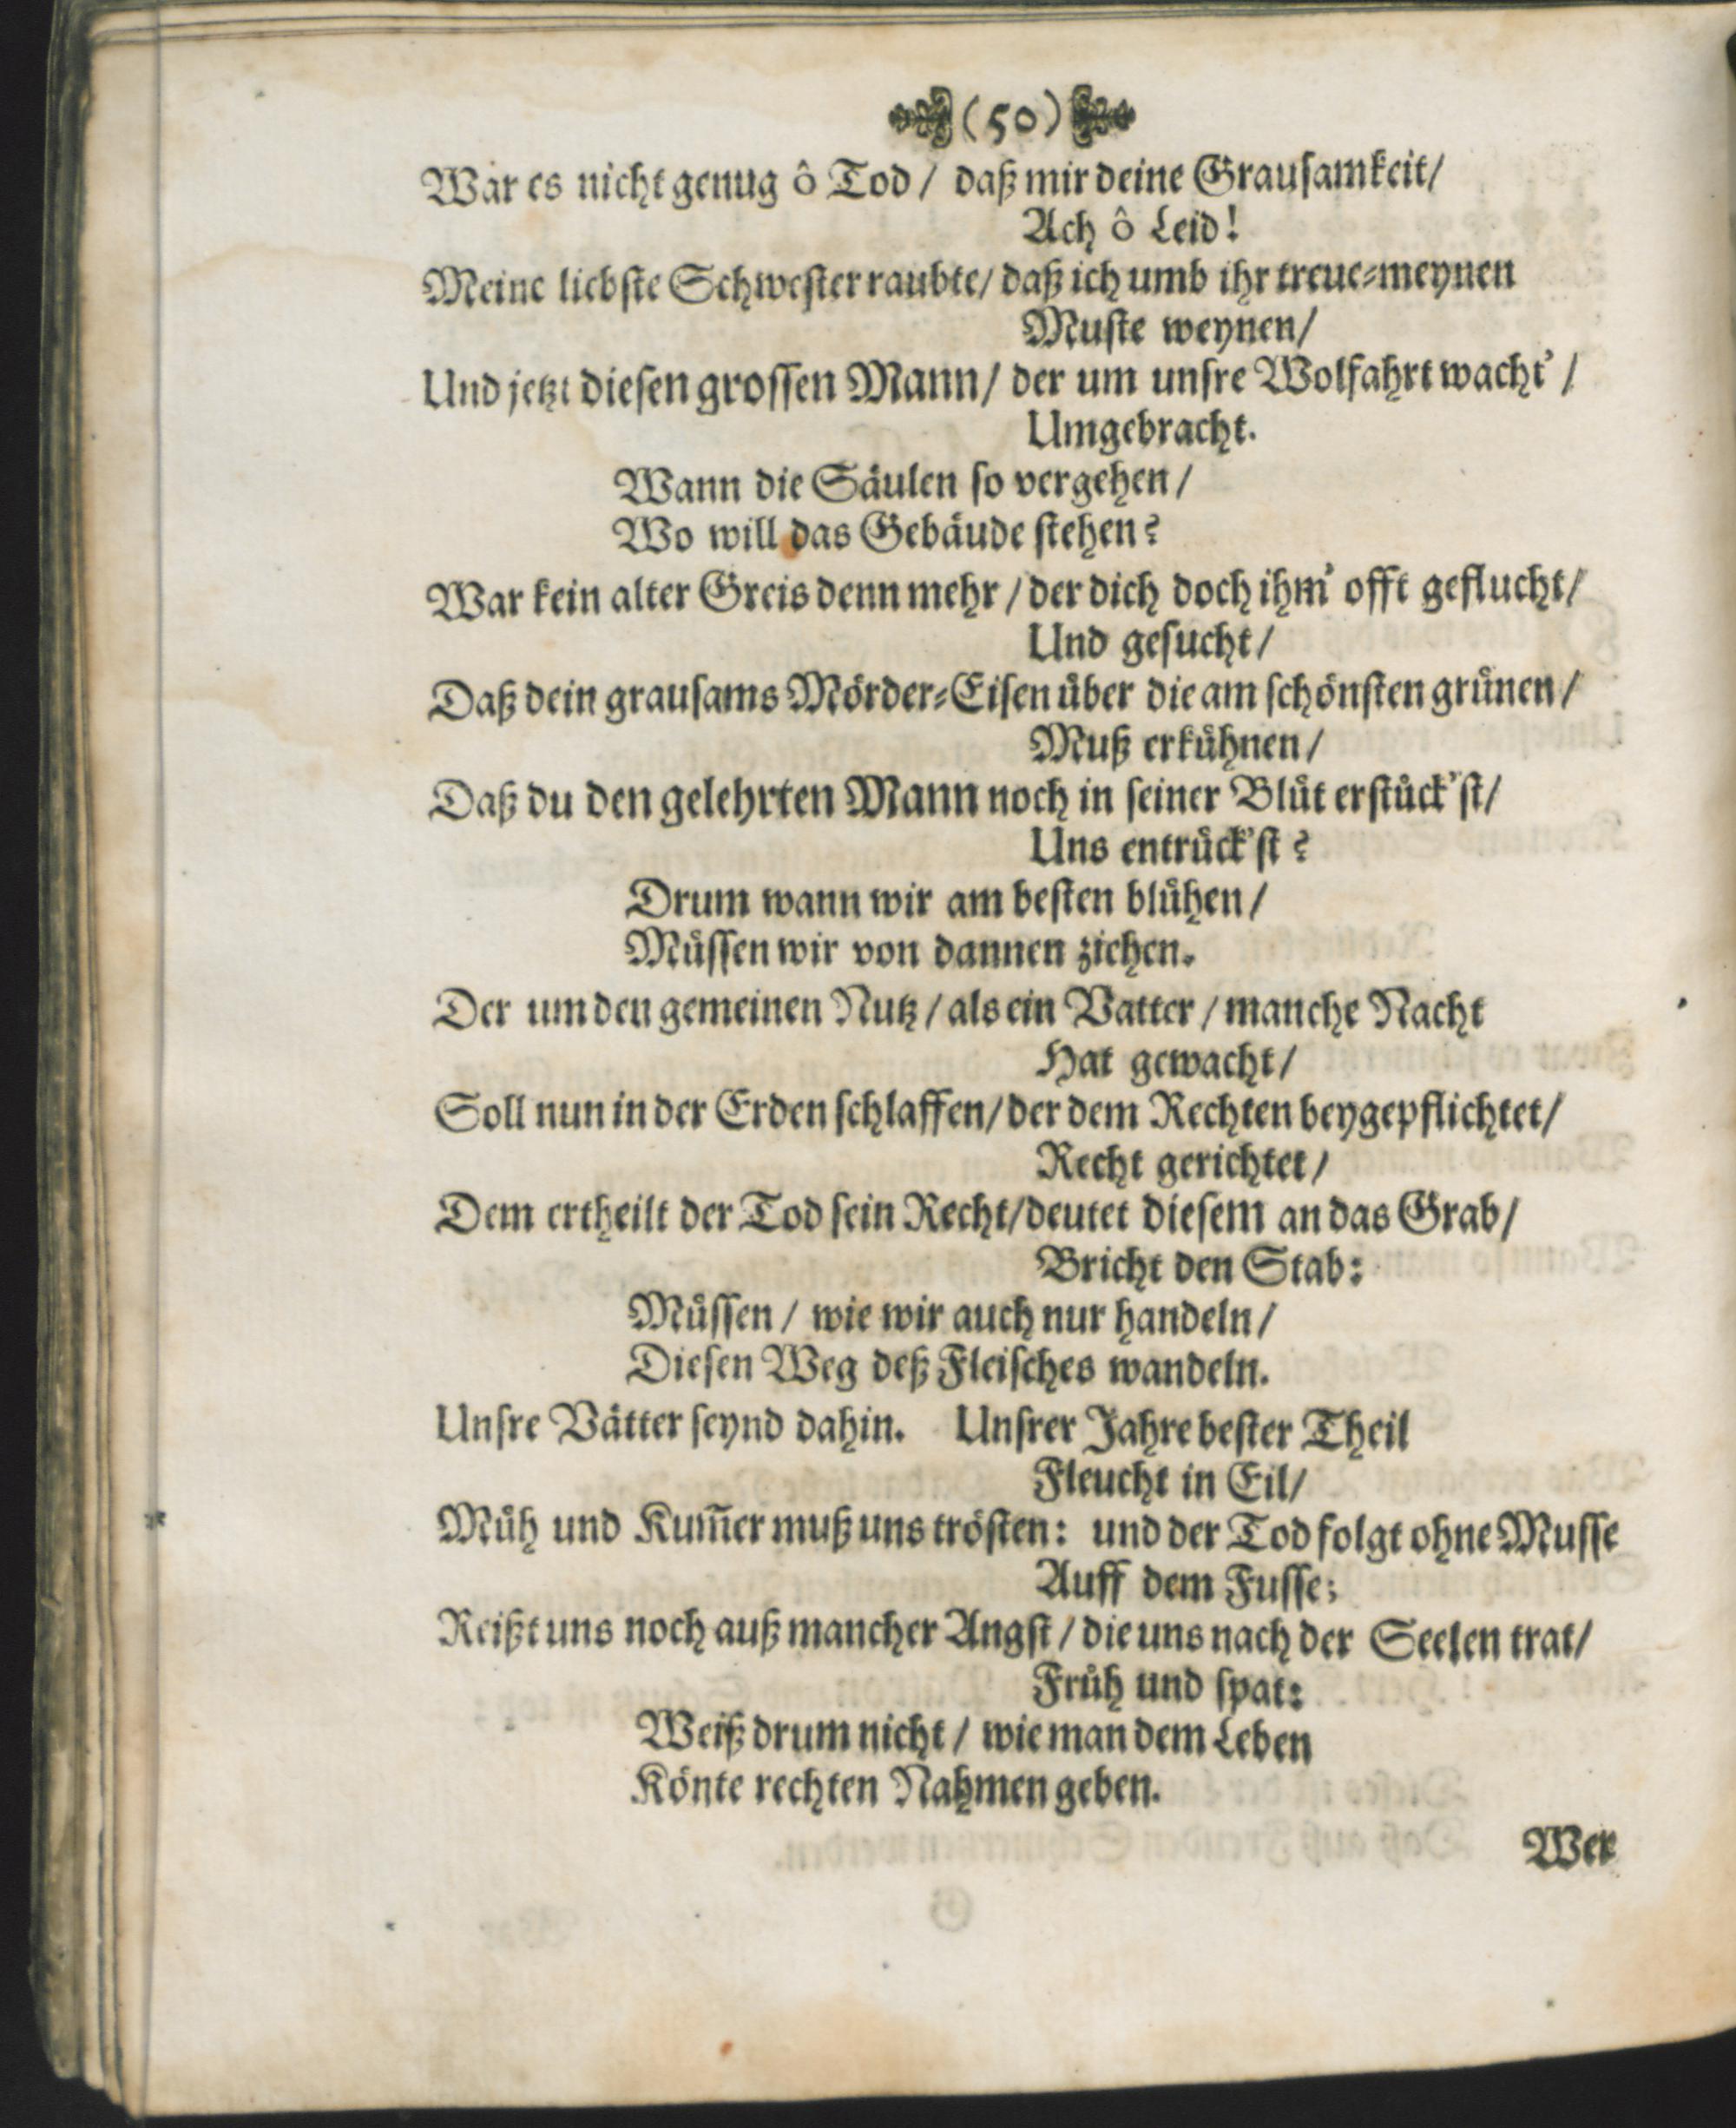 (50)
War es nicht genug ô Tod / daß mir deine Grausamkeit/
Ach ô Leid!
Meine liebste Schwester raubte/ daß ich umb ihr treue-meynen
Muste weynen/
Und jetzt diesen grossen Mann/ der um unsre Wolfahrt wacht' /
Umgebracht.
Wann die Säulen so vergehen /
Wo will das Gebäude stehen?
War kein alter Greis denn mehr / der dich doch ihm' offt geflucht/
Und gesucht/
Daß dein grausams Mörder-Eisen über die am schönsten grünen /
Muß erkühnen/
Daß du den gelehrten Mann noch in seiner Blüt erstück'st/
Uns entrück'st?
Drum wann wir am besten blühen/
Müssen wir von dannen ziehen.
Der um den gemeinen Nutz / als ein Vatter / manche Nacht
Hat gewacht/
Soll nun in der Erden schlaffen/ der dem Rechten beygepflichtet/
Recht gerichtet/
Dem ertheilt der Tod sein Recht/ deutet diesem an das Grab/
Bricht den Stab:
Müssen / wie wir auch nur handeln/
Diesen Weg deß Fleisches wandeln.
Unsre Vätter seynd dahin. Unsrer Jahre bester Theil
Fleucht in Eil/
Müh und Kum̃er muß uns trösten: und der Tod folgt ohne Musse
Auff dem Fusse;
Reißt uns noch auß mancher Angst / die uns nach der Seelen trat/
Früh und spat:
Weiß drum nicht / wie man dem Leben
Könte rechten Nahmen geben.
Wer